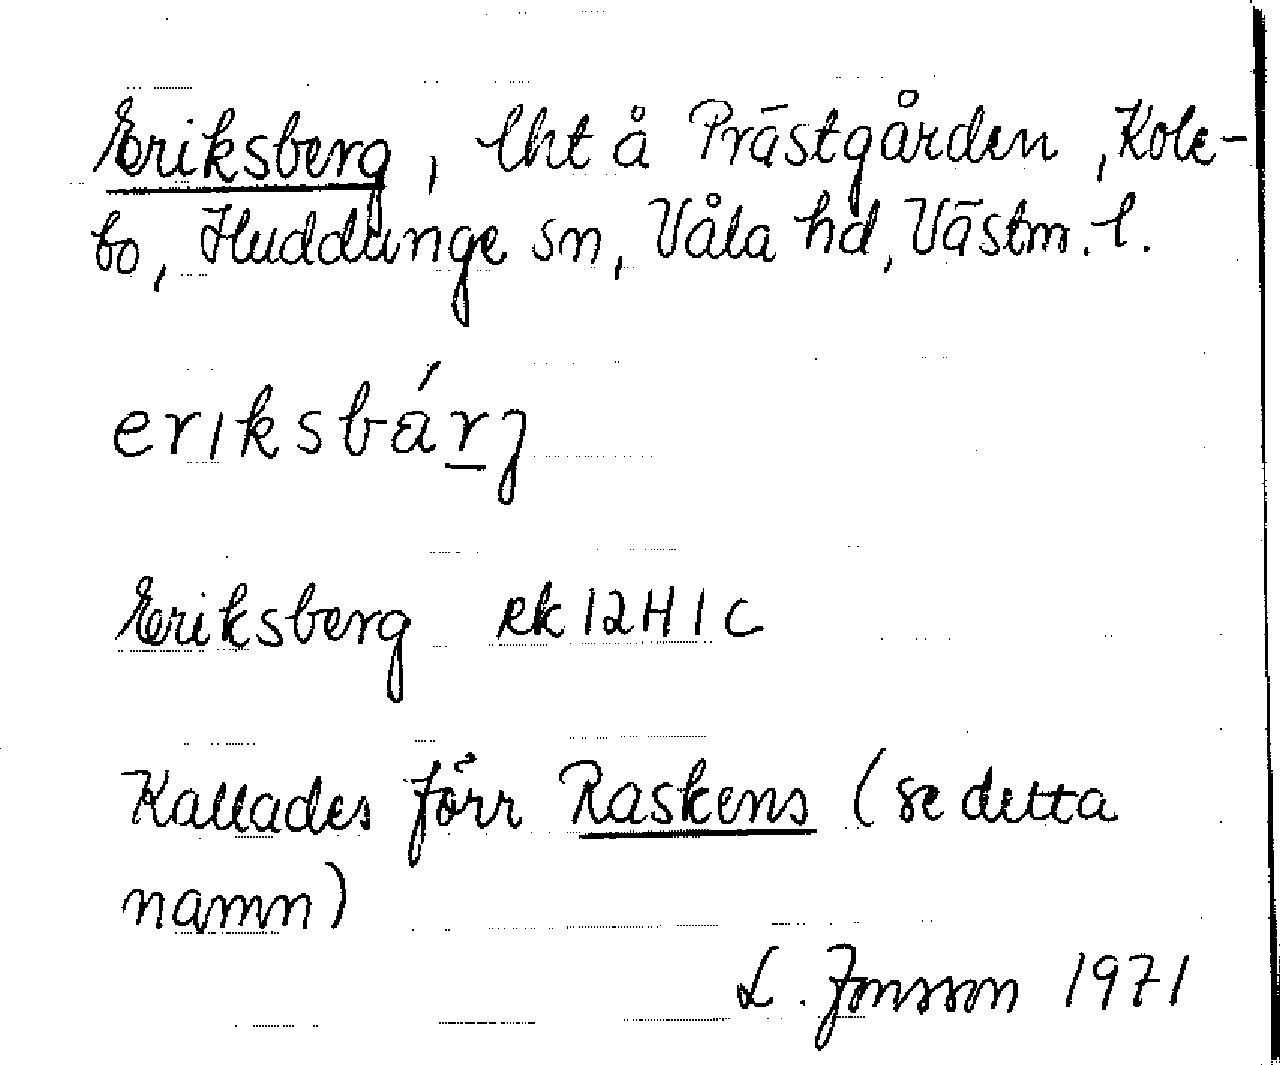 Eriksberg, lht å Prästgården, Kole-
bo, Huddunge sn, Våla hd, Västm. l.
eriksbárʒ
Eriksberg ek 12H1c
Kallades förr Raskens (se detta
namn)
L. Jonsson 1971